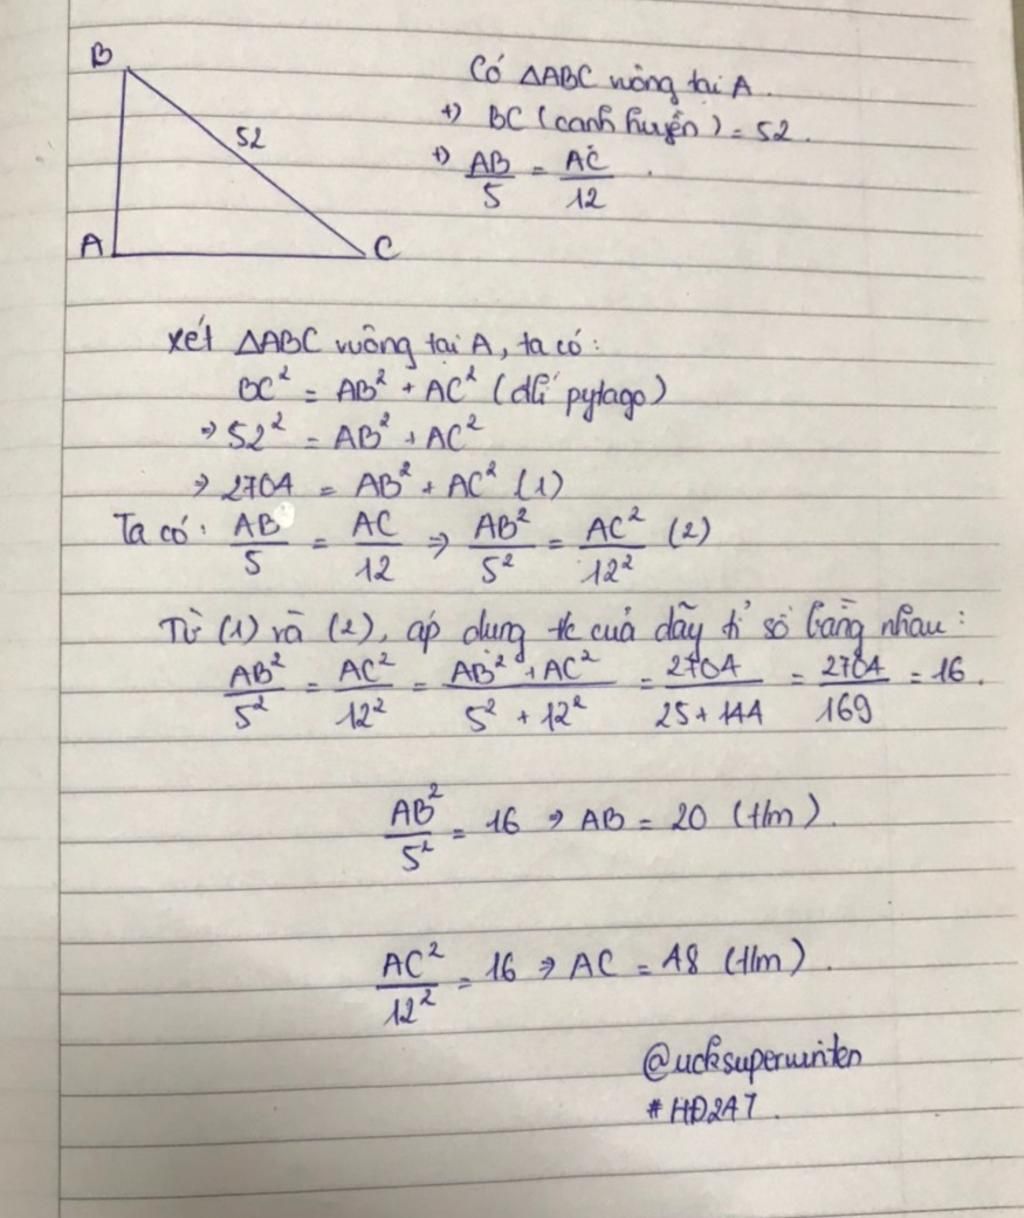 B
52
A
C
Có ΔABC vuông tại A.
+) BC (cạnh huyền) = 52.
+) AB/5 = AC/12.
Xét ΔABC vuông tại A, ta có:
BC² = AB² + AC² (đlí pytago)
⇒ 52² = AB² + AC²
⇒ 2704 = AB² + AC² (1)
Ta có: AB/5 = AC/12 ⇒ AB²/5² = AC²/12² (2)
Từ (1) và (2), áp dụng tc của dãy tỉ số bằng nhau:
AB²/5² = AC²/12² = (AB² + AC²)/(5² + 12²) = 2704/(25 + 144) = 2704/169 = 16.
AB²/5² = 16 ⇒ AB = 20 (tlm).
AC²/12² = 16 ⇒ AC = 48 (tlm).
#HĐ247